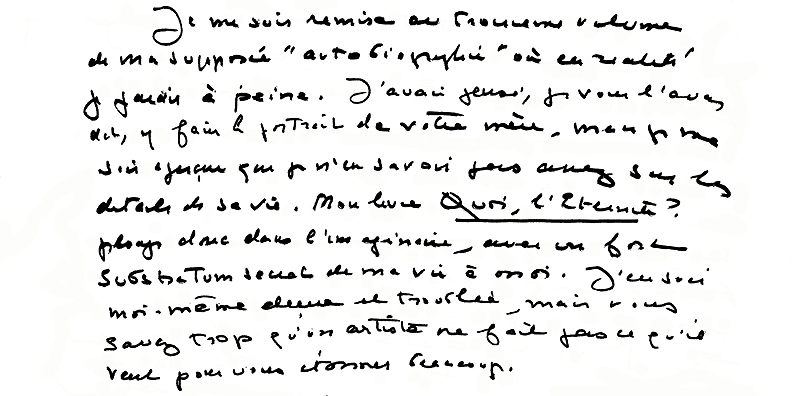 Je me suis remise au troisième volume
de ma supposée "autobiographie" où en réalité
je parais à peine. J'avais pensé, je vous l'avais
dit, y faire le portrait de votre mère, mais je me
suis aperçue que je n'en savais pas assez sur les
détails de sa vie. Mon livre Quoi, l'Eternité?
plonge donc dans l'imaginaire, avec un fort
substratum secret de ma vie à moi. J'en suis
moi-même émue et troublée, mais vous
savez trop qu'un artiste ne fait pas ce qu'il
veut pour vous étonner beaucoup.